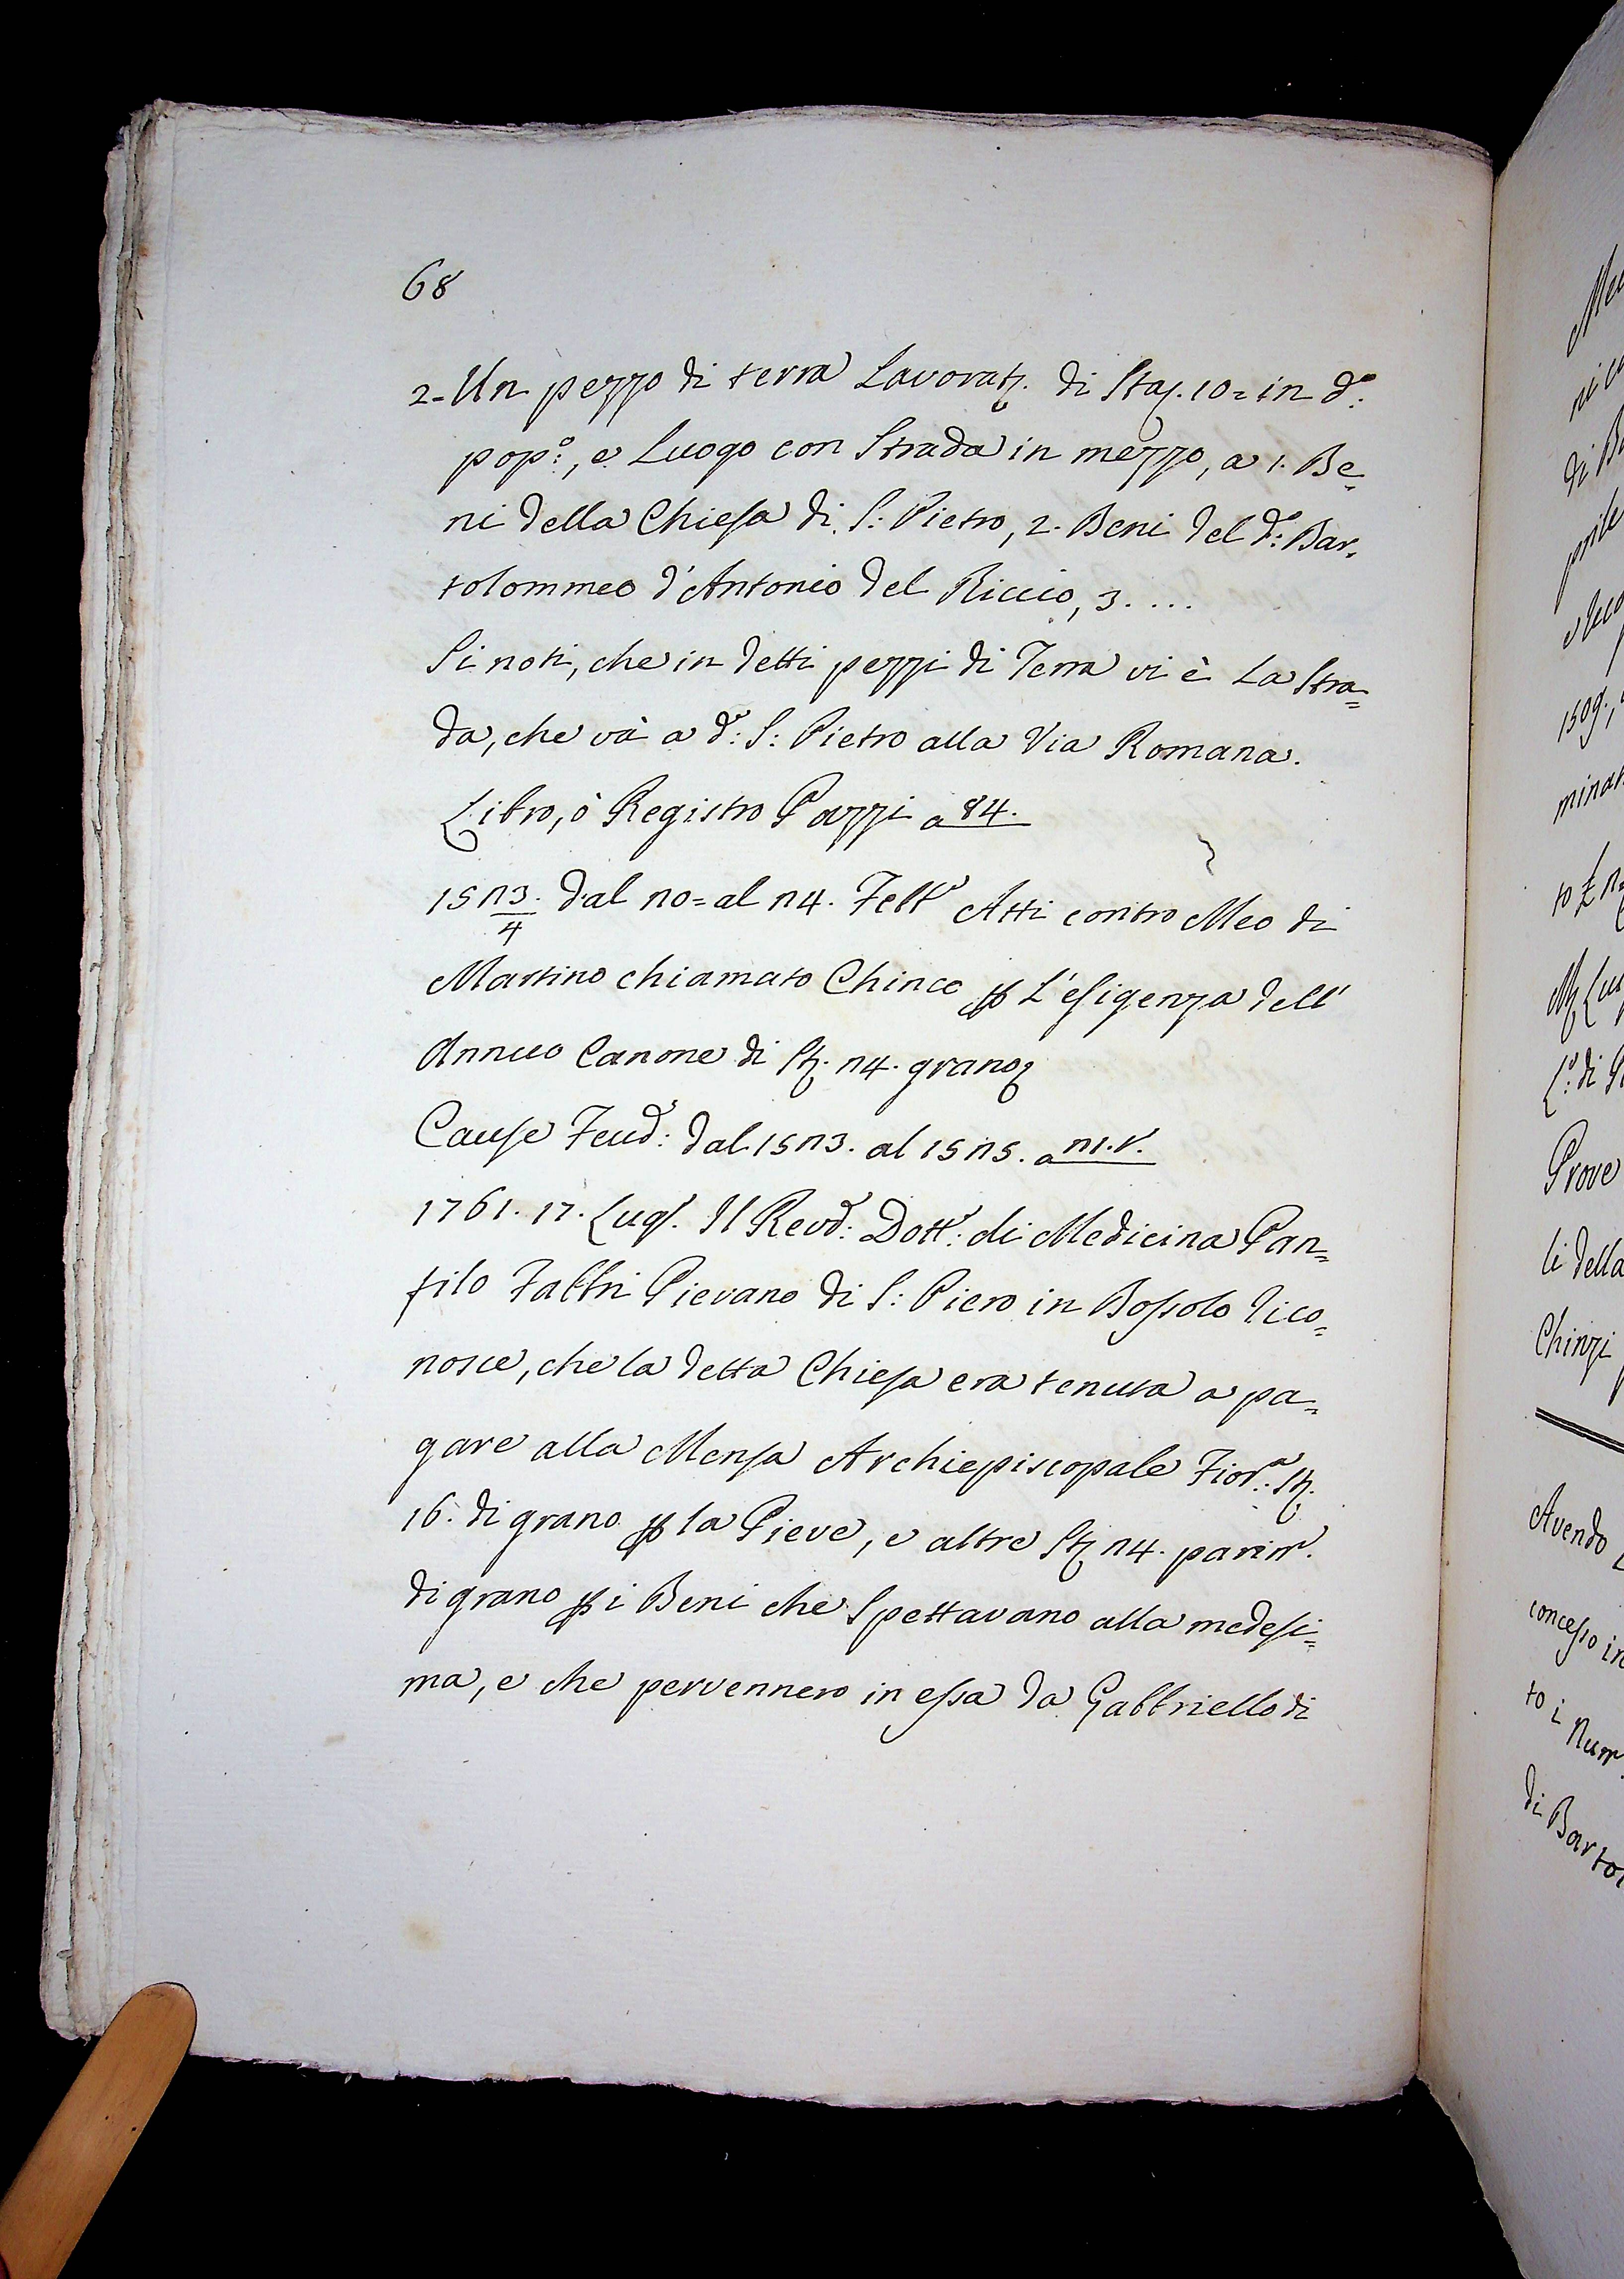 68
2- Un pezzo di terra Lavorat. di Staj. 10= in d.º
pop.º, e Luogo con Strada in mezzo, a 1. Be=
ni della Chiesa di S: Pietro, 2. Beni del d.º Bar=
tolommeo d'Antonio del Riccio, 3. ....
Si noti, che in detti pezzi di Terra vi è La Stra=
da, che và a d.º S: Pietro alla Via Romana.
Libro, ò Registro Pazzi a 84.
1523/4. dal 20= al 24. Febb.º Atti contro Meo di
Martino chiamato Chinco p L'esigenza dell'
Annuo Canone di St. 24. grano
Cause Feud: dal 1523. al 1525. a 21. V.
1761. 17. Lug. Il Revd: Dott: di Medicina Pan=
filo Fabbri Pievano di S: Piero in Bossolo rico=
nosce, che la detta Chiesa era tenuta a pa=
gare alla Mensa Archiepiscopale Fior.ª St.
16. di grano p la Pieve, e altre St. 24. parim.
di grano p i Beni che Spettavano alla medesi=
ma, e che pervennero in essa da Gabbriello di
di
1509.
Prove
li della
Chinzi
Avendo
concesso in
to i Num.
di Barto